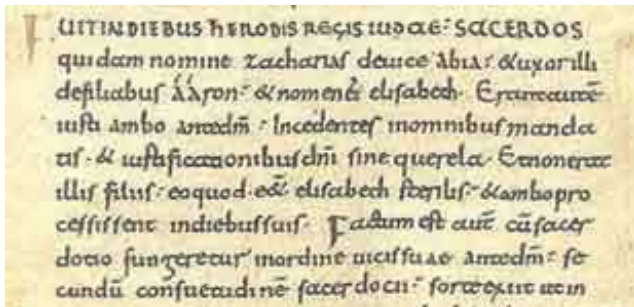 FUIT IN DIEBUS HERODIS REGIS IUDAE· SACERDOS
quidam nomine zacharias deuice abia· & uxor illi
defiliabus ááron· & nomen ei elisabeth· Erant autē
iusti ambo ante dm̄· Incedentes in omnibus manda
tis· & iustificationibus dn̄i sine querela· Et non erat
illis filius· eo quod eēt elisabeth sterilis· & ambo pro
cessissent in diebus suis· Factum est autē cū sacer
dotio fungeretur in ordine uicis suae ante dm̄· se
cundū consuetudinē sacerdocii· forte exiit ut in